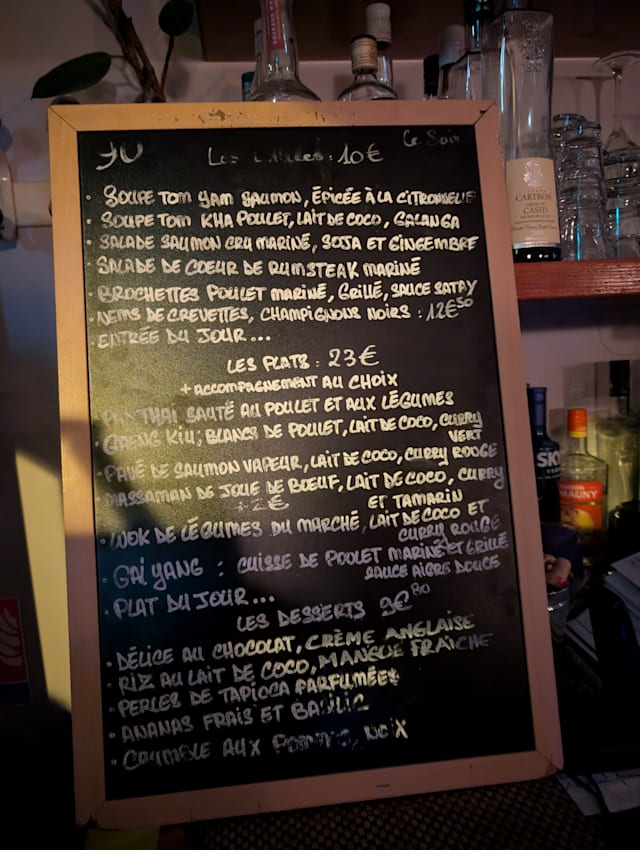 Ce Soir
Les : 10€
• SOUPE TOM YAM SAUMON, ÉPICÉE À LA CITRONNELLE
• SOUPE TOM KHA POULET, LAIT DE COCO, GALANGA
• SALADE SAUMON CRU MARINÉ, SOJA ET GINGEMBRE
SALADE DE COEUR DE RUMSTEAK MARINÉ
• BROCHETTES POULET MARINÉ, GRILLÉ, SAUCE SATAY
• NEMS DE CREVETTES, CHAMPIGNONS NOIRS : 12€50
• ENTRÉE DU JOUR...
LES PLATS : 23€
+ ACCOMPAGNEMENT AU CHOIX
THAI SAUTÉ AU POULET ET AUX LÉGUMES
• GAENG KIU; BLANCS DE POULET, LAIT DE COCO, CURRY
VERT
• PAVÉ DE SAUMON VAPEUR, LAIT DE COCO, CURRY ROUGE
MASSAMAN DE JOUE DE BOEUF, LAIT DE COCO, CURRY
+2€ ET TAMARIN
• WOK DE LÉGUMES DU MARCHÉ, LAIT DE COCO ET
CURRY ROUGE
• GAÏ YANG : CUISSE DE POULET MARINÉ ET GRILLÉ
SAUCE AIGRE DOUCE
• PLAT DU JOUR...
LES DESSERTS 9€80
• DÉLICE AU CHOCOLAT, CRÈME ANGLAISE
• RIZ AU LAIT DE COCO, MANGUE FRAÎCHE
• PERLES DE TAPIOCA PARFUMÉES
• ANANAS FRAIS ET BASILIC
• CRUMBLE AUX POMMES, NOIX
CARTRON
CASSIS
SK
MAUNY